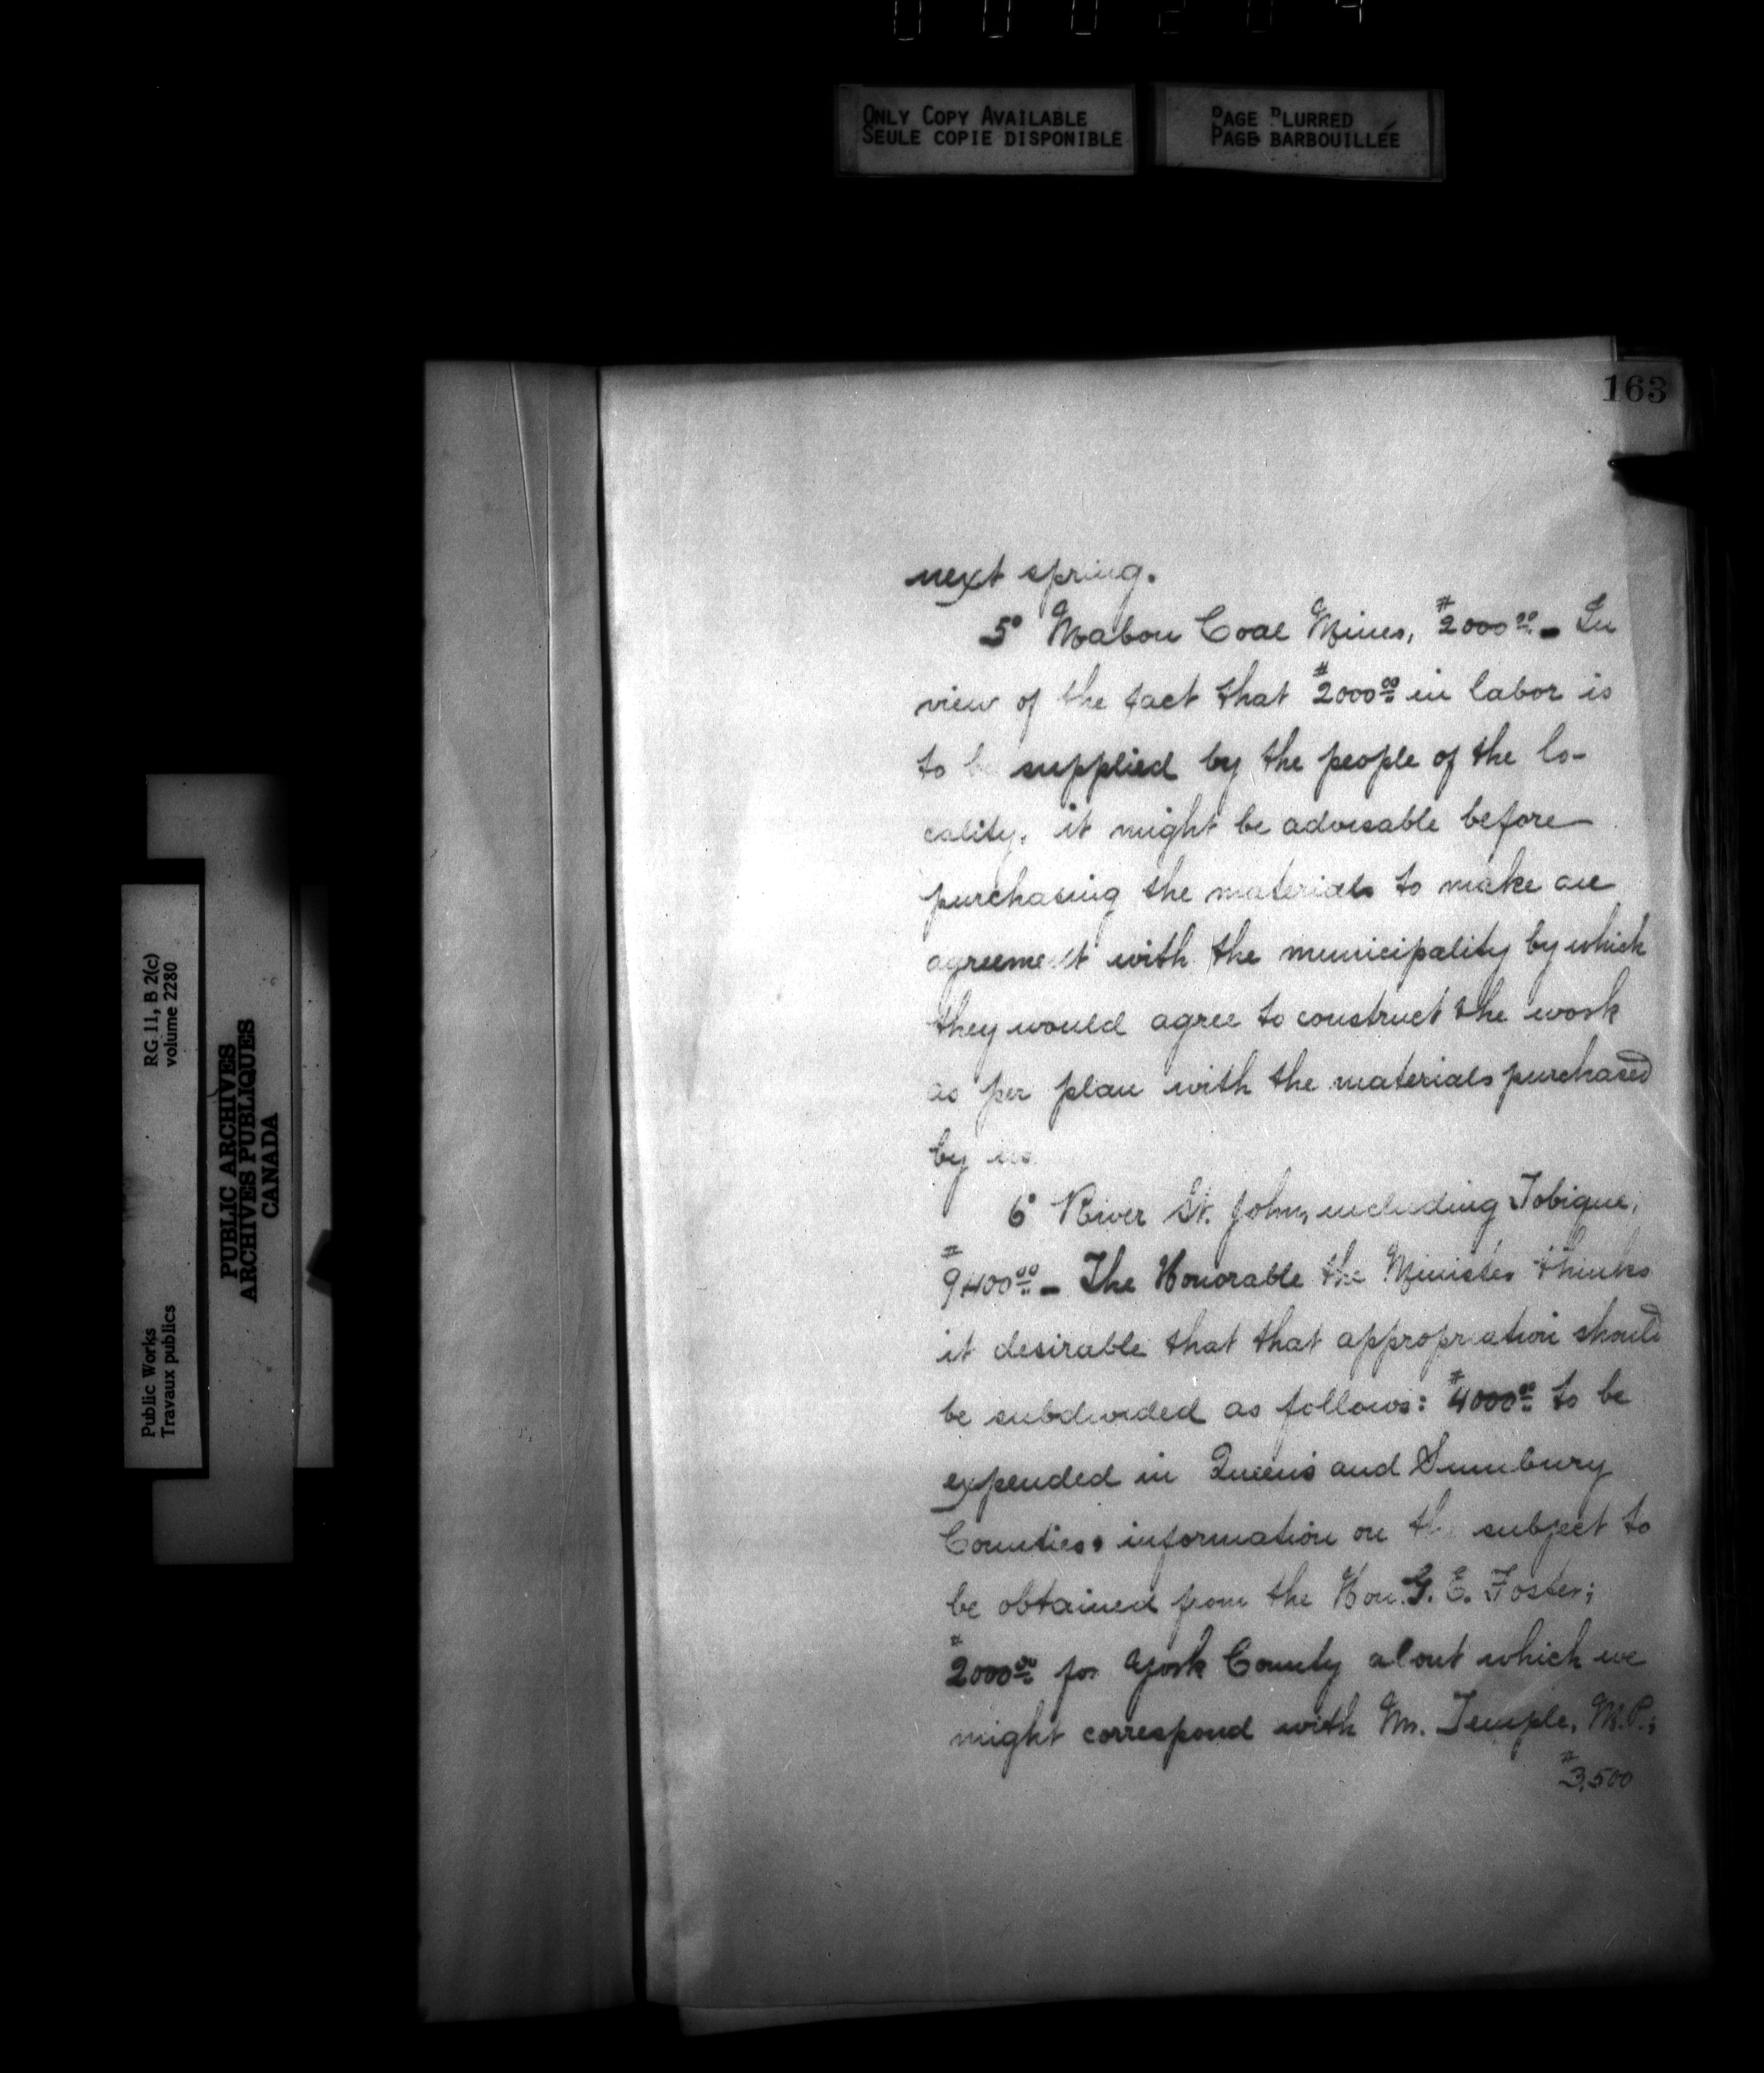 ONLY COPY AVAILABLE
SEULE COPIE DISPONIBLE
PAGE BLURRED
PAGE BARBOUILLÉE
163
next spring.
5° Mabou Coal Mines, $2000.00 - In
view of the fact that $2000.00 in labor is
to be supplied by the people of the lo-
cality, it might be advisable before
purchasing the materials to make an
agreement with the municipality by which
they would agree to construct the work
as per plan with the materials purchased
by us
6° River St. John, including Tobique,
$9400.00 - The Honorable the Minister thinks
it desirable that that appropriation should
be subdivided as follows: $4000.00 to be
expended in Queen's and Sunbury
Counties, information on the subject to
be obtained from the Hon. G. E. Foster;
$2000.00 for York County about which we
might correspond with Mr. Temple, M.P.;
$3,500
RG 11, B 2(c)
volume 2280
Public Works
Travaux publics
PUBLIC ARCHIVES
ARCHIVES PUBLIQUES
CANADA